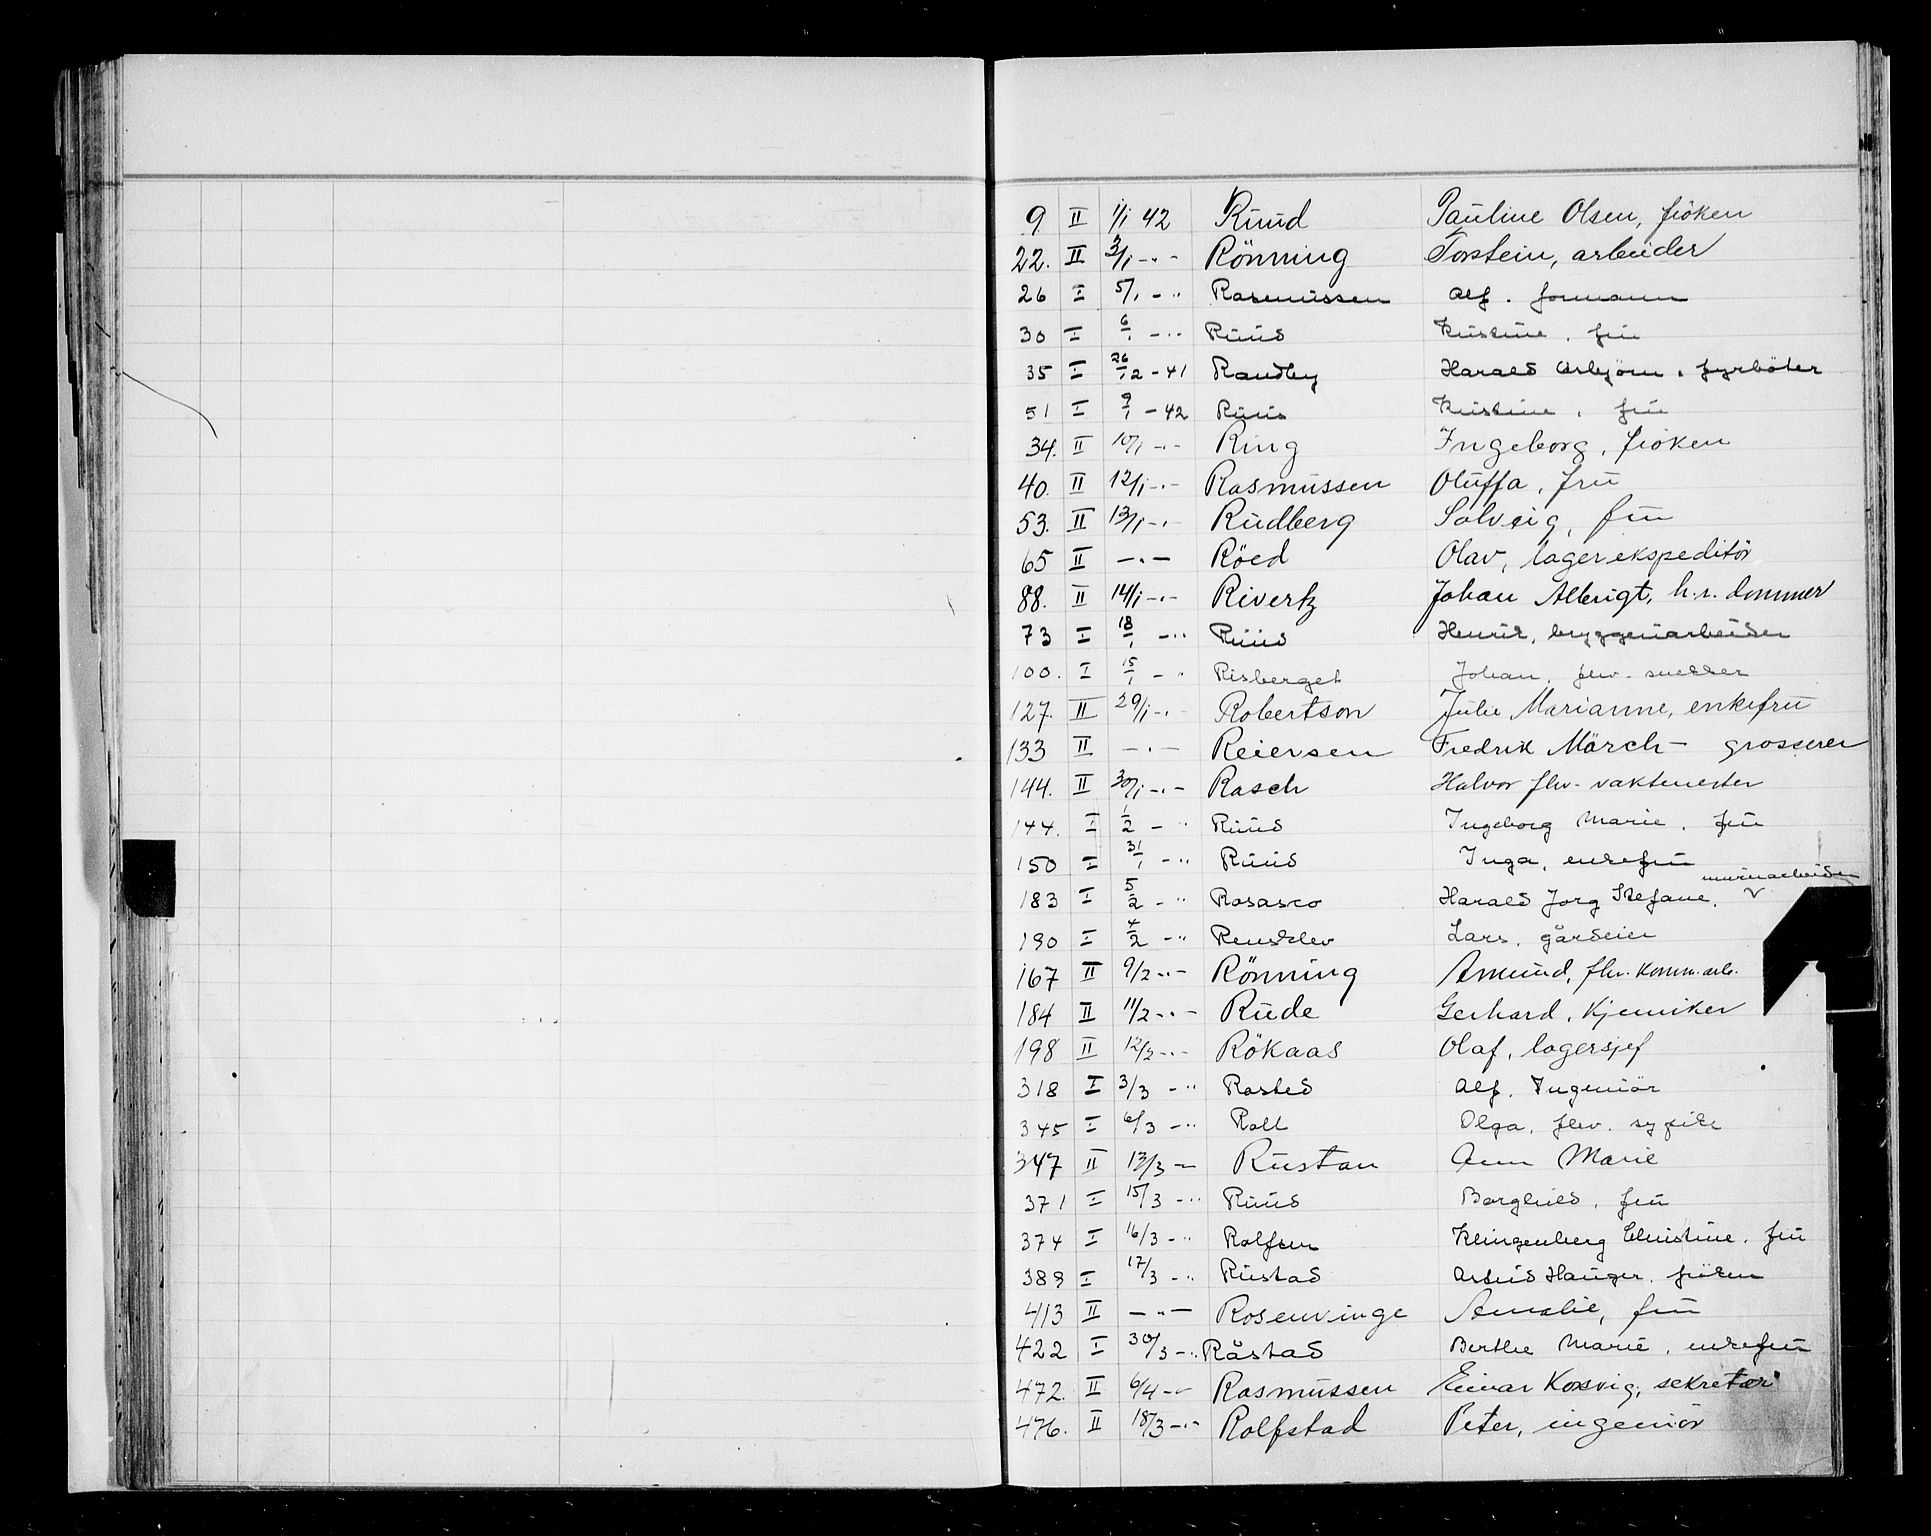 9. II 1/1 42 Ruud Pauline Olsen, fröken
22. II 3/1 -"- Rönning Torstein, arbeider
26 I 5/1 - " Rasmussen Alf. formann
30 I 6/1 - " Ruud Kristine, fru
35 I 26/12 - 41 Randby Harald Asbjörn, fyrböter
51 I 9/1 - 42 Ruud Kristine, fru
34. II 10/1 -"- Ring Ingeborg, fröken
40. II 12/1 -"- Rasmussen Oluffa, fru
53. II 13/1 -"- Rudberg Solveig, fru
65 II -"- Röed Olav, lagerekspeditör
88. II 14/1 -"- Rivertz Johan Albrigt, h.r. dommer
73 I 18/1 - " Ruud Henrik, bryggeriarbeider
100. I 15/1 - " Risberget Johan, fhv. snekker
127. II 29/1 -"- Robertson Julie Marianne, enkefru
133 II -"- Reiersen Fredrik Mörch - grosserer
144. II 30/1 -"- Rasch Halvor fhv. vaktmester
144. I 1/2 - " Ruud Ingeborg Marie, fru
150 I 31/1 - " Ruud Inga, enkefru
183 I 5/2 - " Rosasco Harald Jorg Stefane, murerarbeider
190 I 4/2 - " Rensklev Lars, gårdeier
167 II 9/2 -"- Rönning Amund, fhv. komm.arb.
184 II 11/2 -"- Rude Gerhard, kjemiker
198 II 12/2 -"- Rökaas Olaf, lagersjef
318 I 3/3 - " Rosted Alf, Ingeniör
345 I 6/3 - " Roll Olga, fhv. sypike
347 II 13/3 - Rustan Ann Marie
371 I 15/3 - " Ruud Borghild, fru
374 I 16/3 - " Rolfsen Klingenberg Christine, fru
389 I 17/3 - " Rustad Astrid Hauger, fröken
413 II -"- Rosenvinge Amalie, fru
422 I 30/3 - " Råstad Berthe Marie, enkefru
472. II 6/4 -"- Rasmussen Einar Korsvig, sekretær
476. II 18/3 -"- Rolfstad Peter, ingeniör